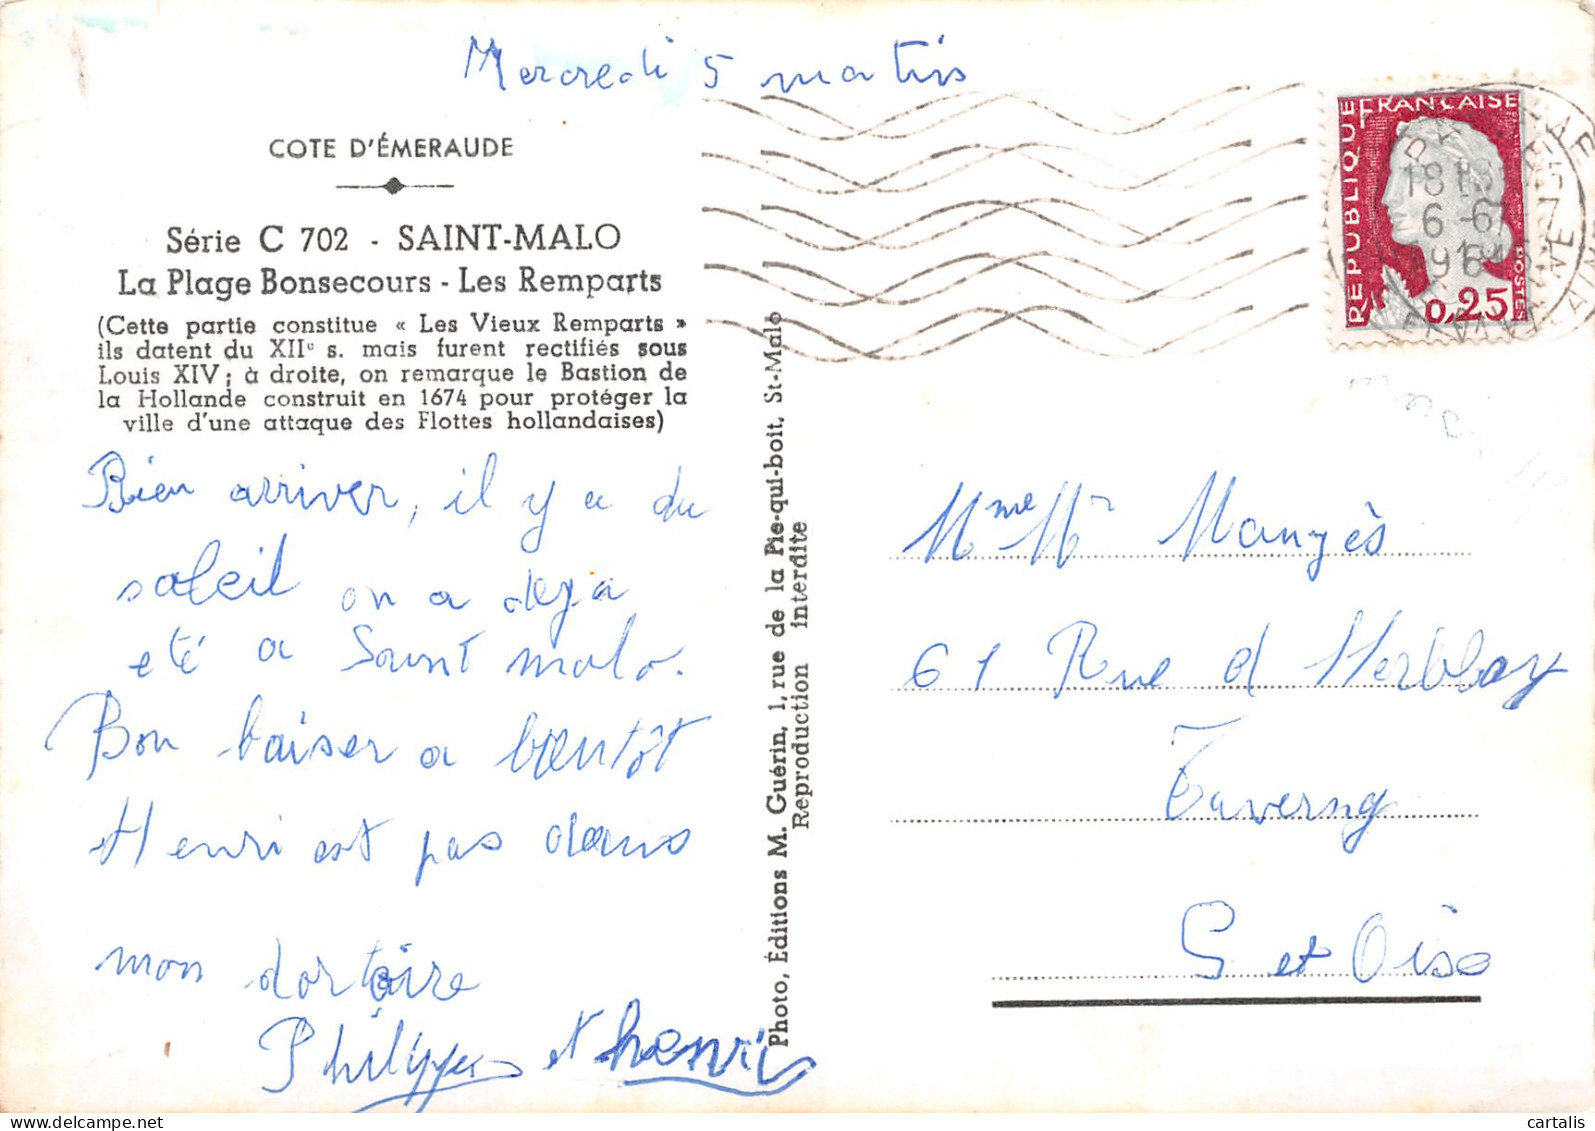 Mercredi 5 matin
COTE D'ÉMERAUDE
Série C 702 - SAINT-MALO
La Plage Bonsecours - Les Remparts
(Cette partie constitue « Les Vieux Remparts »
ils datent du XIIe s. mais furent rectifiés sous
Louis XIV ; à droite, on remarque le Bastion de
la Hollande construit en 1674 pour protéger la
ville d'une attaque des Flottes hollandaises)
Bien arriver, il y a du
soleil on a deja
eté a Saint malo.
Bon baiser a bientôt
Henri est pas dans
mon dortoire
Philippe et henri
Photo, Éditions M. Guérin, 1, rue de la Pie-qui-boit, St-Malo
Reproduction interdite
RÉPUBLIQUE FRANÇAISE
POSTES
0,25
18 H
6 - 6
Mme Mr Mangès
61 Rue d Herblay
Taverny
S et Oise
cartalis